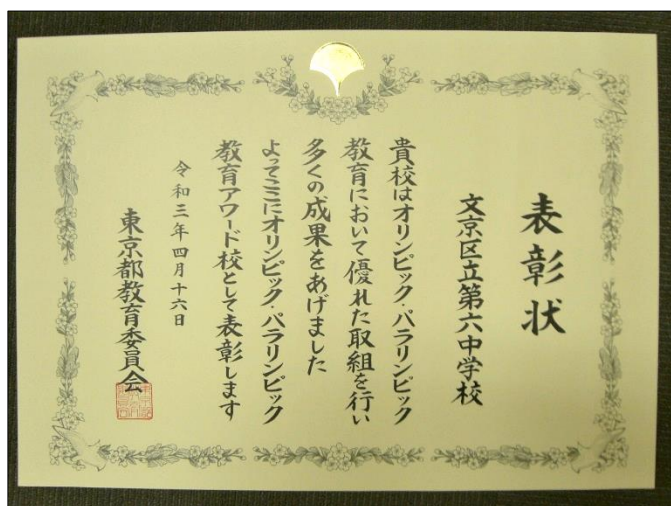 表彰状
文京区立第六中学校
貴校はオリンピック・パラリンピック
教育において優れた取組を行い
多くの成果をあげました
よってここにオリンピック・パラリンピック
教育アワード校として表彰します
令和三年四月十六日
東京都教育委員会